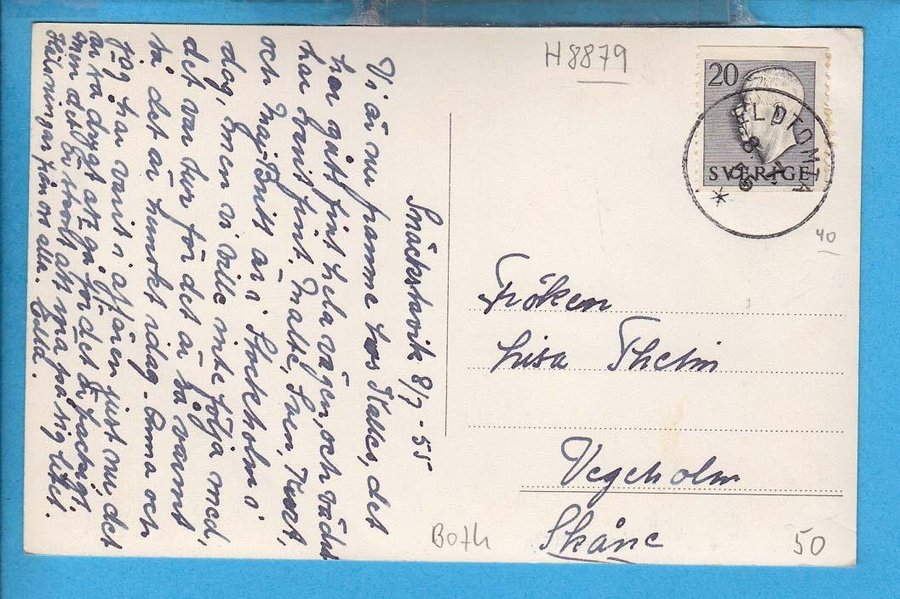 H8879
20
SVERIGE
ELDTOMTA
8. 7. 55
40
Snäckstavik 8/7 - 55
Vi är nu framme hos Kalles, det
har gått fint hela vägen, och vädret
har varit fint. Malte, Sven, Kurt,
och Maj-Britt är i Stockholm i
dag, men vi ville inte följa med,
det var kur för det är så varmt
så det är hemskt idag. Anna och
jag har varit i affären just nu, det
är ra drygt att gå, för det är backigt,
men det är skönt att röra på sig litet.
Hälsningar från oss alla. Edla.
Fröken
Lisa Thelin
Vegeholm
Skåne
Both
50